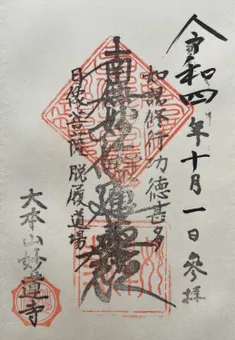 令和四年十月一日参拝
如説修行功徳甚多
南無妙法蓮華経
日像菩薩
脱履道場
大本山妙蓮寺